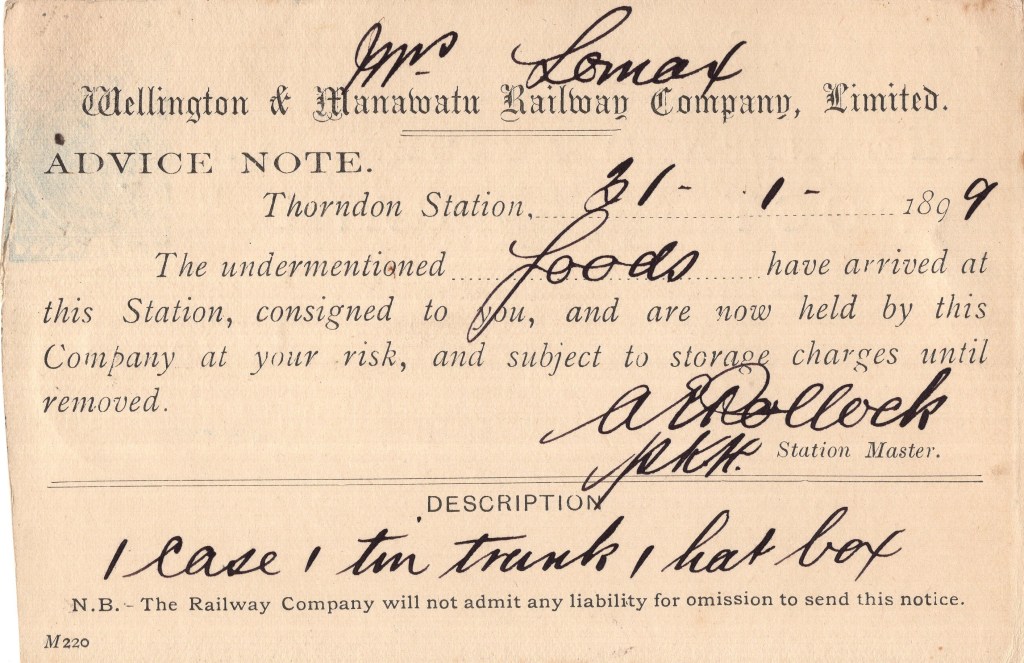 Mrs Lomax
Wellington & Manawatu Railway Company, Limited.
ADVICE NOTE.
Thorndon Station, 31 - 1 - 1899
The undermentioned goods have arrived at
this Station, consigned to you, and are now held by this
Company at your risk, and subject to storage charges until
removed.
A E Pollock
Station Master.
DESCRIPTION
1 case 1 tin trunk 1 hat box
N.B. - The Railway Company will not admit any liability for omission to send this notice.
M220